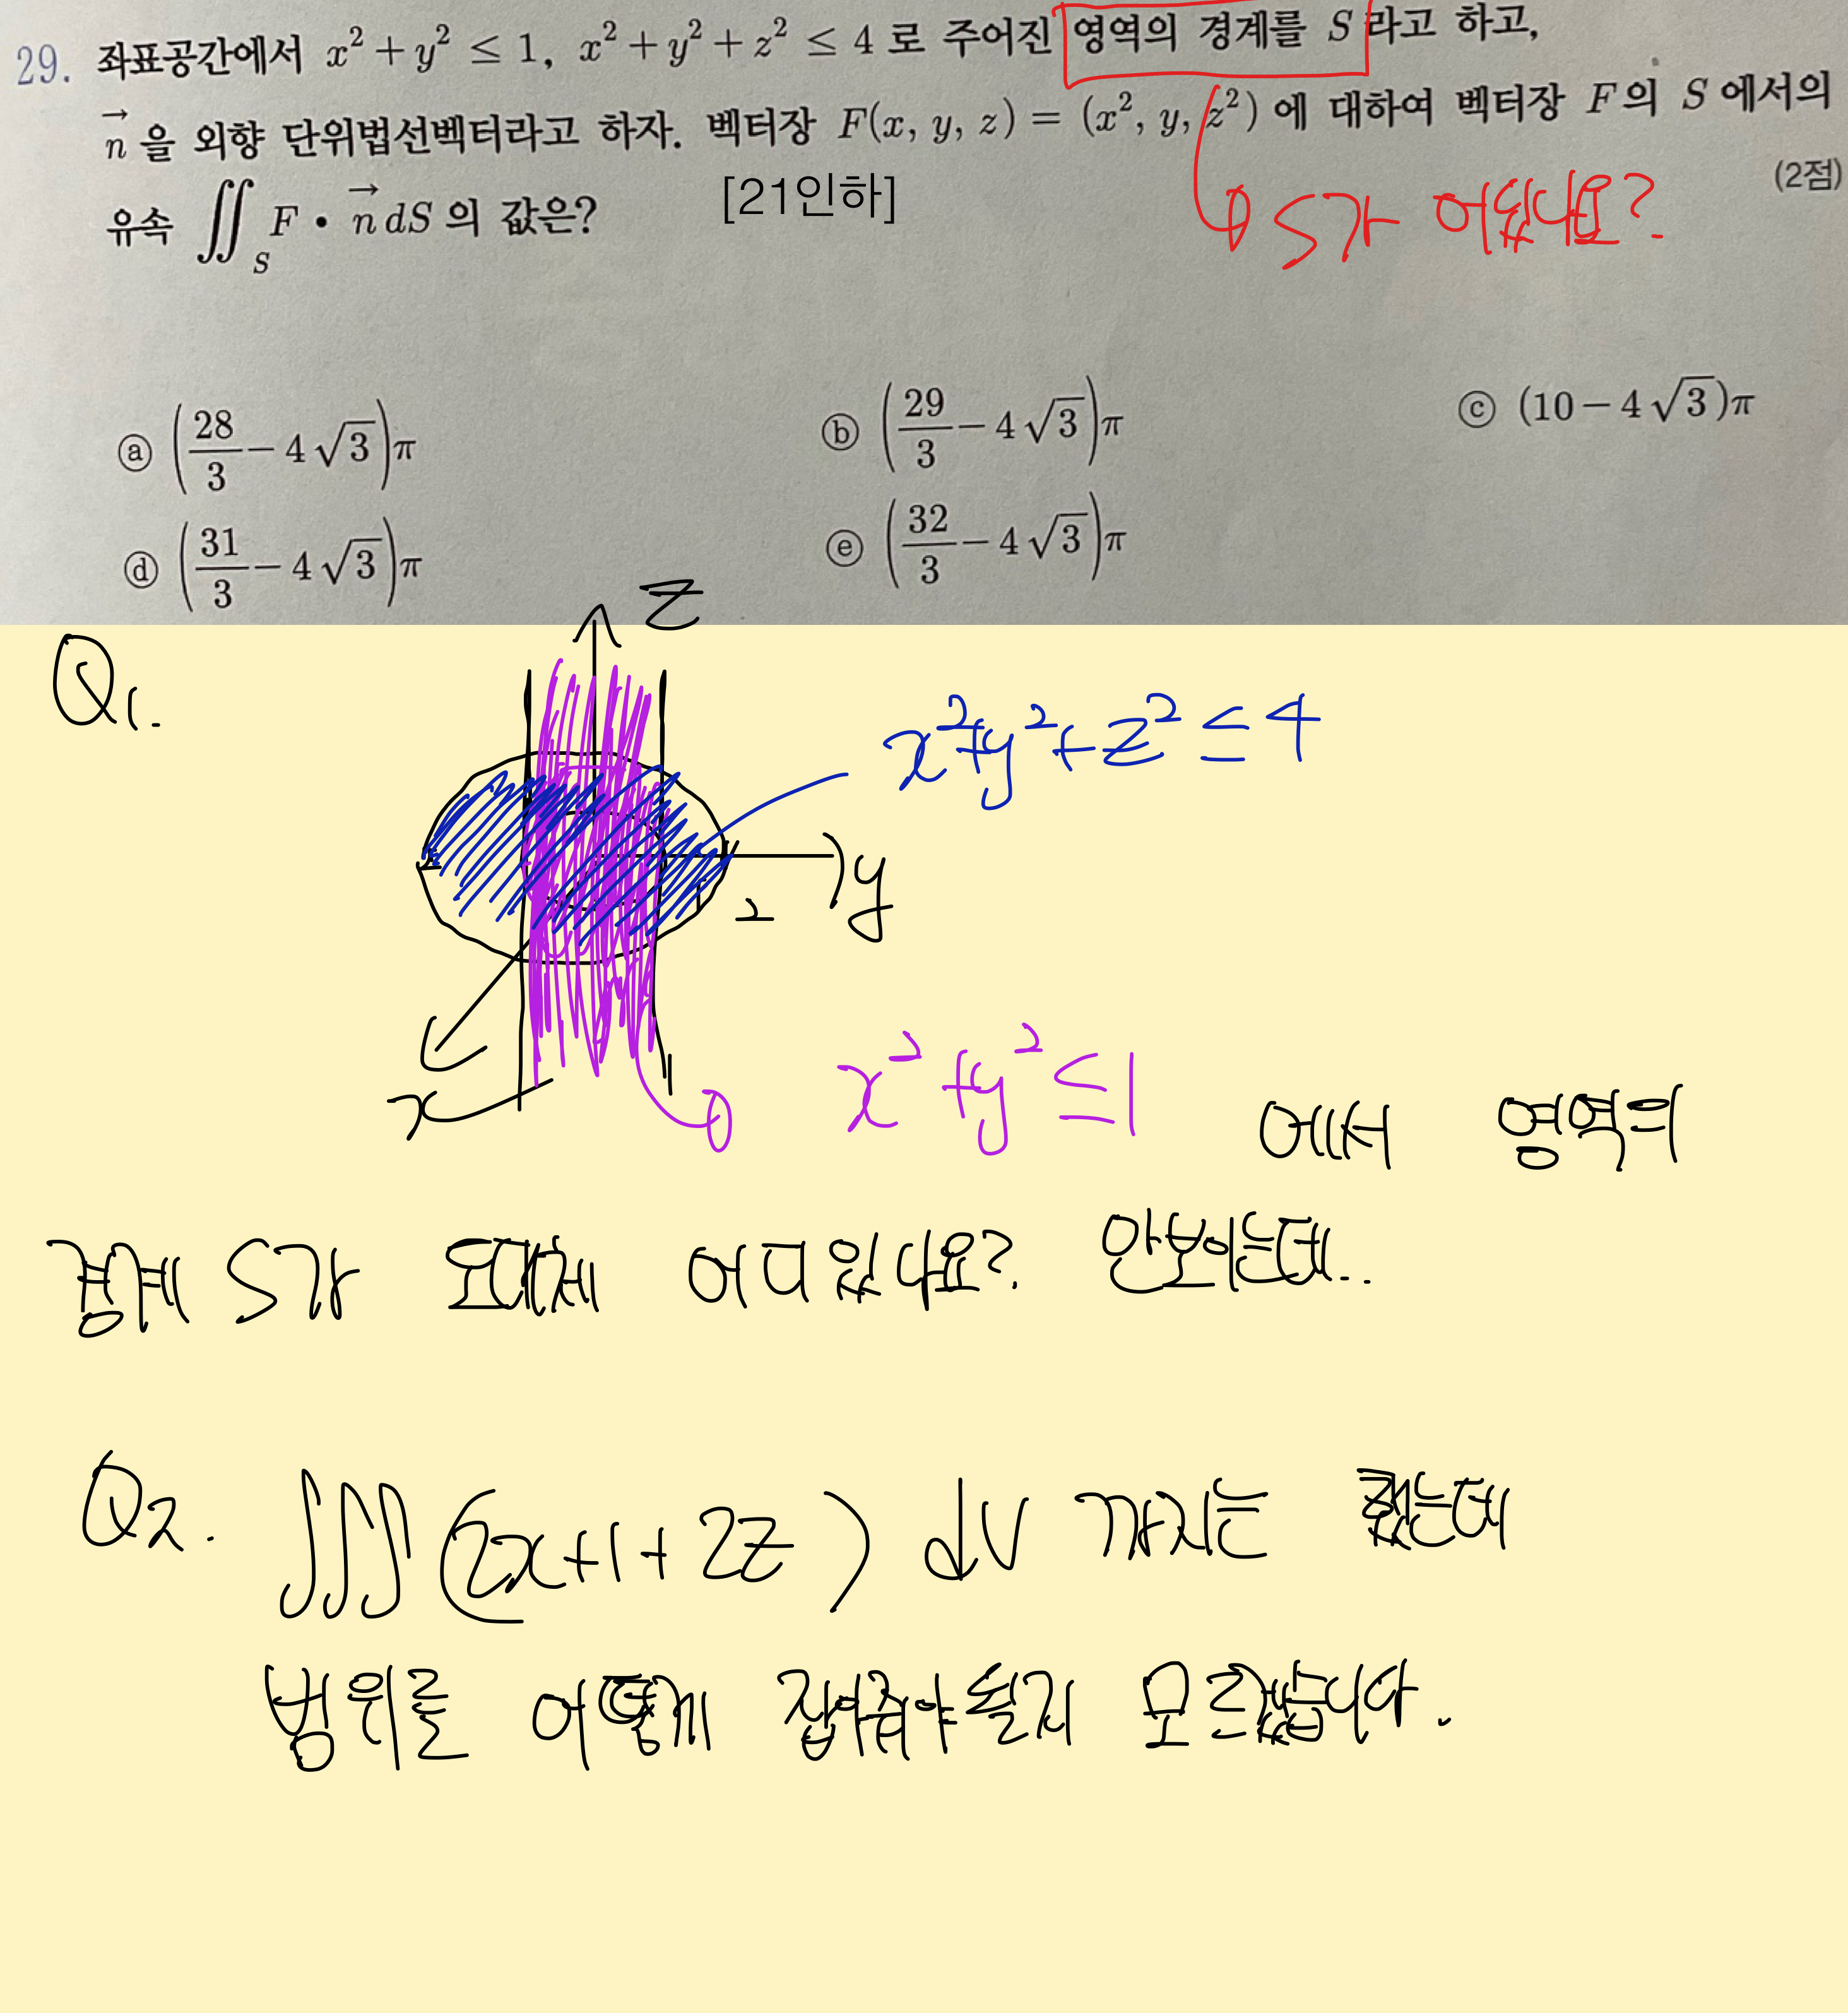 29. 좌표공간에서 x² + y² ≤ 1, x² + y² + z² ≤ 4 로 주어진 영역의 경계를 S 라고 하고,
n⃗ 을 외향 단위법선벡터라고 하자. 벡터장 F(x, y, z) = (x², y, z²) 에 대하여 벡터장 F의 S 에서의
유속 ∬_S F • n⃗ dS 의 값은? [21인하] (2점)
S가 어딨나요?
ⓐ (28/3 − 4√3)π ⓑ (29/3 − 4√3)π ⓒ (10 − 4√3)π
ⓓ (31/3 − 4√3)π ⓔ (32/3 − 4√3)π
Q1.
z
x²+y²+z² ≤ 4
y
2
x
x²+y² ≤ 1 에서 영역의
경계 S가 도대체 어디있나요? 안보이는데..
Q2. ∭(2x+1+2z) dV 까지는 했는데
범위를 어떻게 잡아줘야 될지 모르겠습니다.